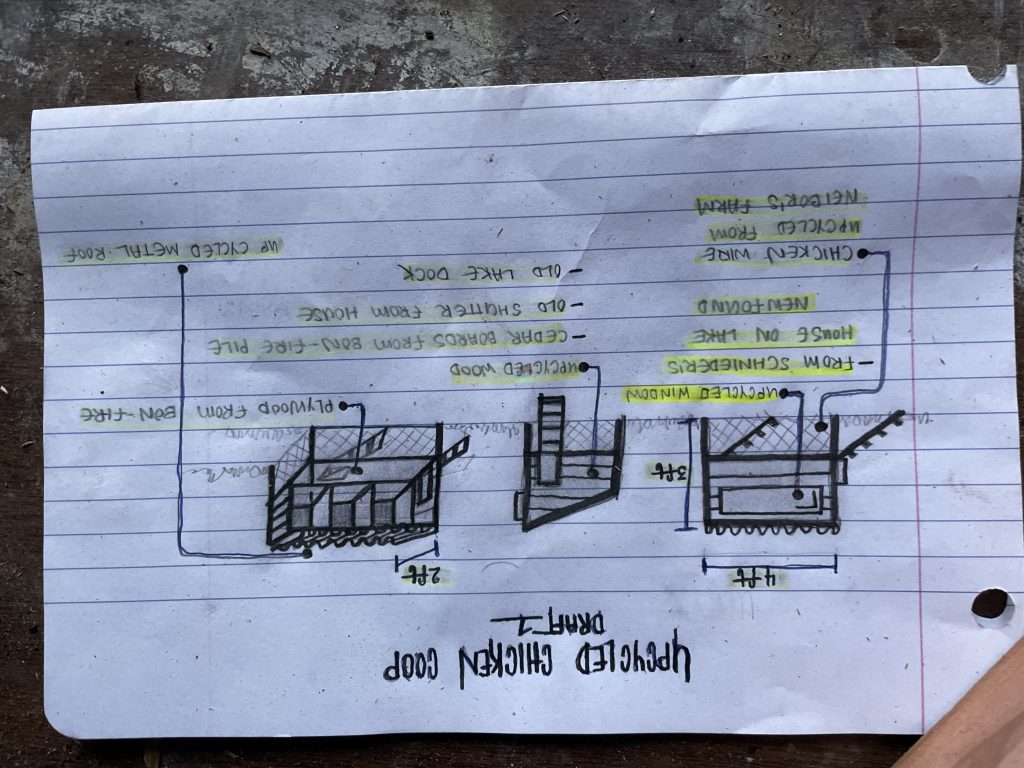 UPCYCLED CHICKEN COOP
DRAFT 1
4ft
2ft
3ft
UPCYCLED WINDOW
- FROM SCHNIEDER'S
HOUSE ON LAKE
NEWFOUND
CHICKEN WIRE
UPCYCLED FROM
NEIGOR'S FARM
UPCYCLED WOOD
- CEDAR BOARDS FROM BON-FIRE PILE
- OLD SHUTTER FROM HOUSE
- OLD LAKE DOCK
PLYWOOD FROM BON-FIRE
UPCYCLED METAL ROOF